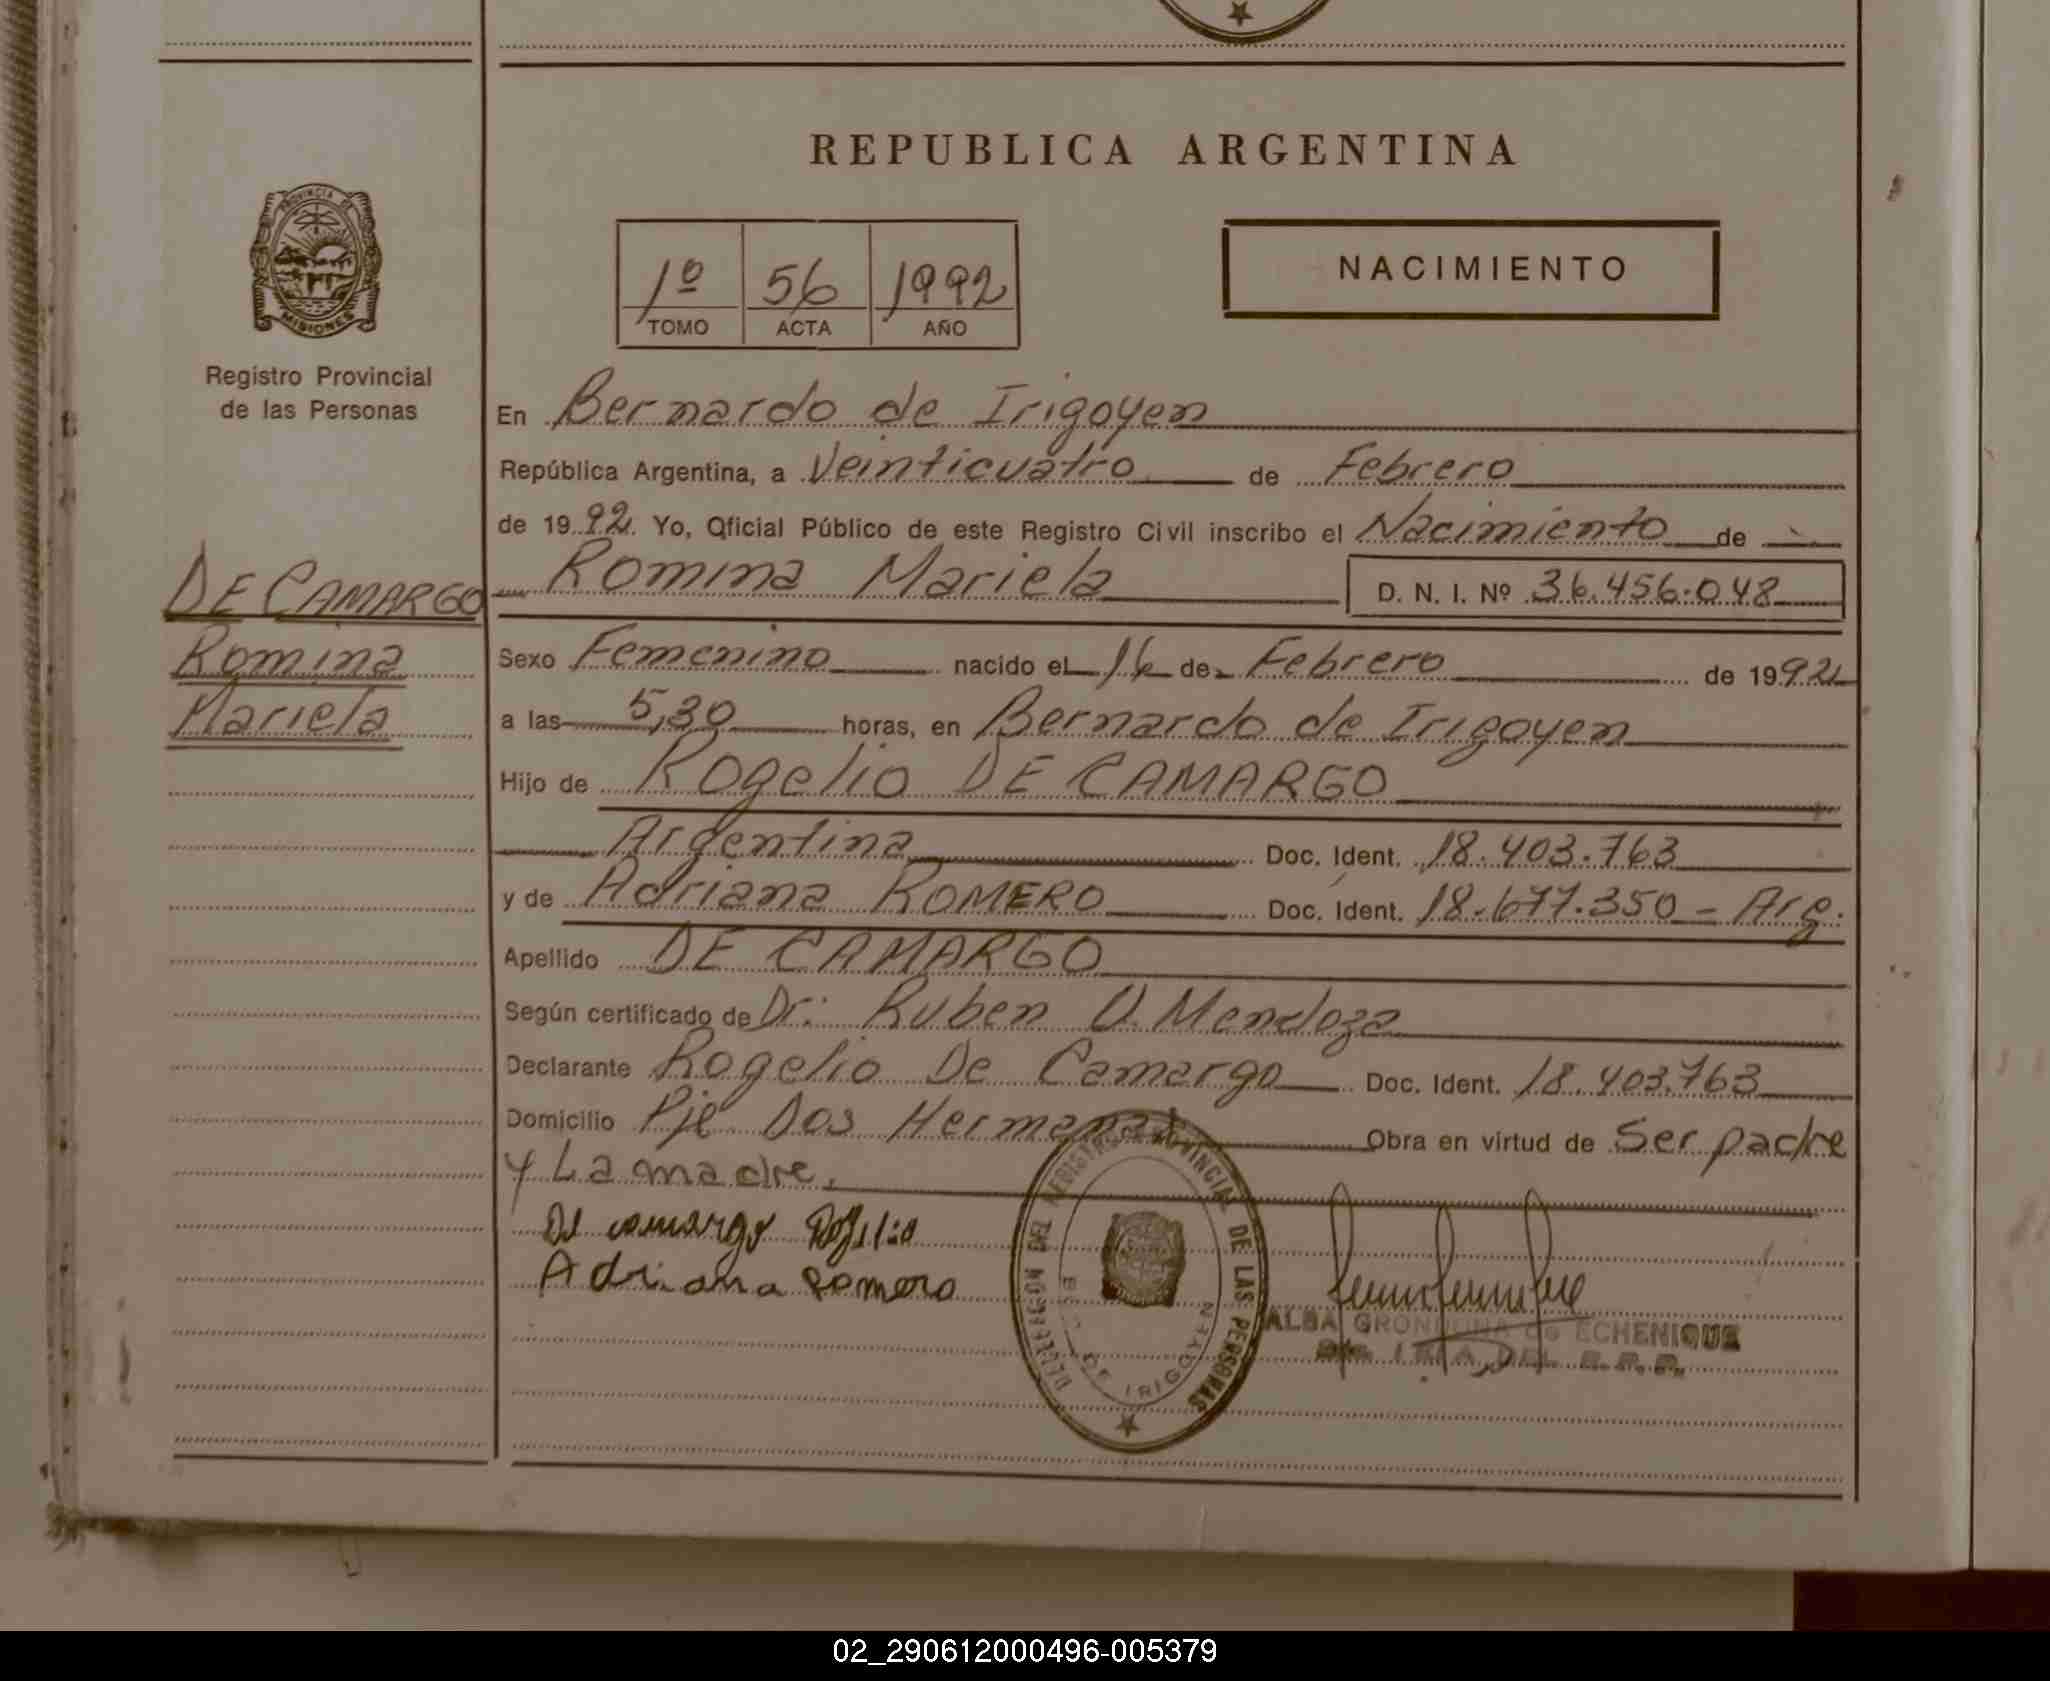 REPUBLICA ARGENTINA
PROVINCIA DE
MISIONES
Registro Provincial
de las Personas
1º 56 1992
TOMO ACTA AÑO
NACIMIENTO
DE CAMARGO
Romina
Mariela
En Bernardo de Irigoyen
República Argentina, a Veinticuatro de Febrero
de 1992. Yo, Oficial Público de este Registro Civil inscribo el Nacimiento de
Romina Mariela D. N. I. Nº 36.456.048
Sexo Femenino nacido el de Febrero de 1992
a las 5,30 horas, en Bernardo de Irigoyen
Hijo de Rogelio DE CAMARGO
Argentina Doc. Ident. 18.403.763
y de Adriana ROMERO Doc. Ident. 18.677.350 - Arg.
Apellido DE CAMARGO
Según certificado de Dr: Ruben U. Mendoza
Declarante Rogelio De Camargo Doc. Ident. 18.403.763
Domicilio Pje Dos Hermanas Obra en virtud de Ser padre
y La madre.
De camargo Rogelio
Adriana Romero
REGISTRO PROVINCIAL DE LAS PERSONAS
DE IRIGOYEN
ALBA GRONDONA de ECHENIQUE
DEL R. P. P.
02_290612000496-005379